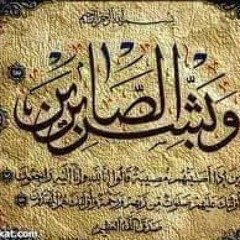 بسم الله الرحمن الرحيم
وبشر الصابرين
الذين إذا أصابتهم مصيبة قالوا إنا لله وإنا إليه راجعون
أولئك عليهم صلوات من ربهم ورحمة وأولئك هم المهتدون
صدق الله العظيم
kat.com